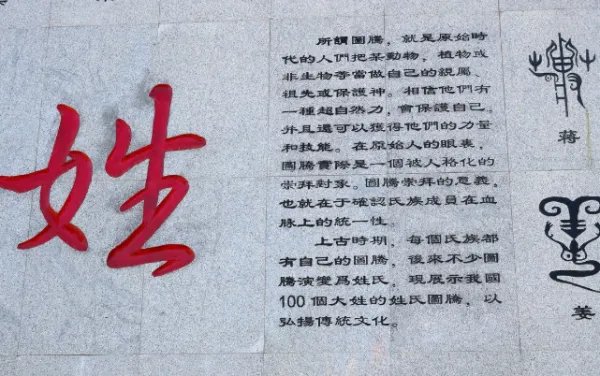 姓
所謂圖騰，就是原始時
代的人們把某動物，植物或
非生物等當做自己的親屬、
祖先或保護神。相信他們有
一種超自然力，會保護自己。
并且還可以獲得他們的力量
和技能。在原始人的眼裏，
圖騰實際是一個被人格化的
崇拜對象。圖騰崇拜的意義，
也就在于確認氏族成員在血
脉上的統一性。
上古時期，每個氏族都
有自己的圖騰，後來不少圖
騰演變爲姓氏。現展示我國
100個大姓的姓氏圖騰，以
弘揚傳統文化。
蔣
姜